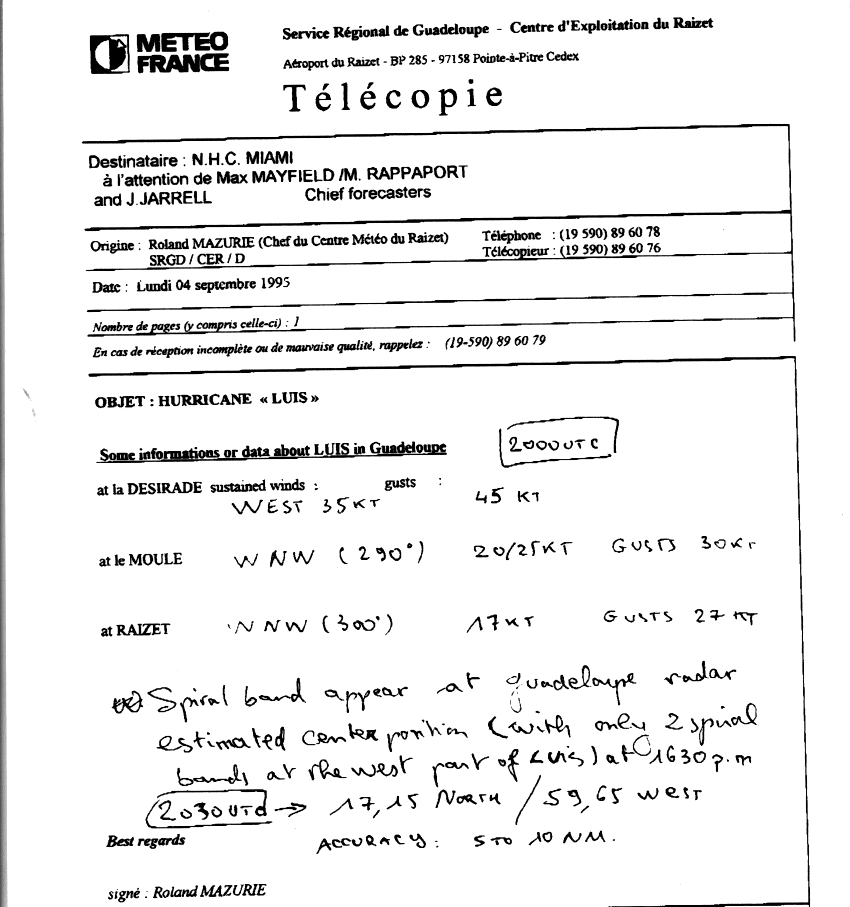 METEO
FRANCE
Service Régional de Guadeloupe - Centre d'Exploitation du Raizet
Aéroport du Raizet - BP 285 - 97158 Pointe-à-Pitre Cedex
Télécopie
Destinataire : N.H.C. MIAMI
à l'attention de Max MAYFIELD /M. RAPPAPORT
and J.JARRELL Chief forecasters
Origine : Roland MAZURIE (Chef du Centre Météo du Raizet) Téléphone : (19 590) 89 60 78
SRGD / CER / D Télécopieur : (19 590) 89 60 76
Date : Lundi 04 septembre 1995
Nombre de pages (y compris celle-ci) : 1
En cas de réception incomplète ou de mauvaise qualité, rappelez : (19-590) 89 60 79
OBJET : HURRICANE « LUIS »
Some informations or data about LUIS in Guadeloupe 2000UTC
at la DESIRADE sustained winds : gusts :
WEST 35KT 45 KT
at le MOULE WNW (290°) 20/25KT GUSTS 30KT
at RAIZET WNW (300°) 17KT GUSTS 27 KT
Spiral band appear at guadeloupe radar
estimated center position (with only 2 spiral
bands at the west part of Luis) at 1630 p.m
2030UTC → 17,15 NORTH / 59,65 WEST
Best regards ACCURACY: 5 TO 10 NM.
signé : Roland MAZURIE